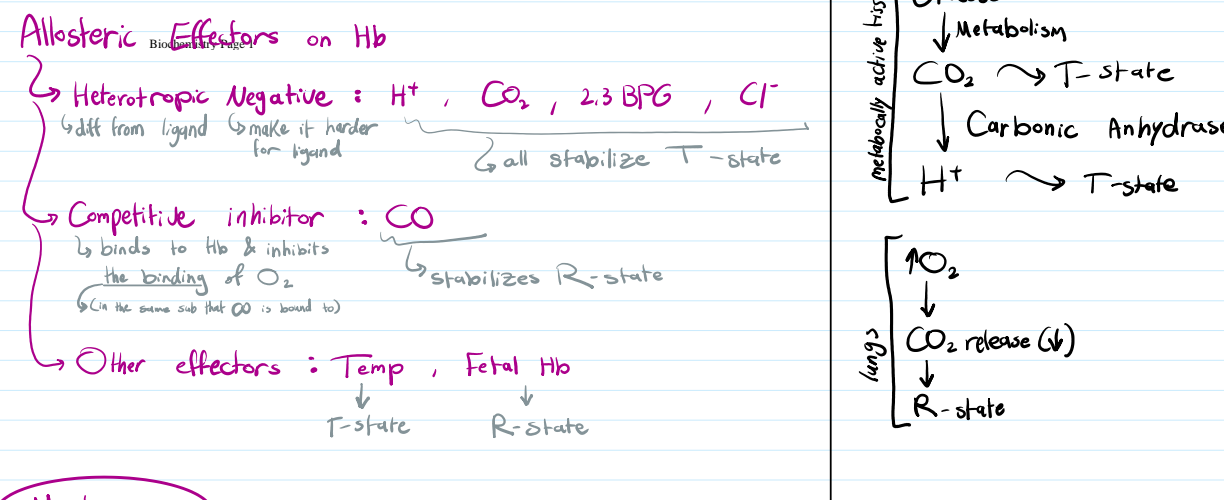 Allosteric Effectors on Hb
Biochemistry Page 1
Heterotropic Negative : H⁺ , CO₂ , 2.3 BPG , Cl⁻
diff from ligand make it harder
for ligand
all stabilize T-state
Competitive inhibitor : CO
binds to Hb & inhibits
the binding of O₂
(in the same sub that CO is bound to)
stabilizes R-state
Other effectors : Temp , Fetal Hb
T-state R-state
metabocally active tiss
Metabolism
CO₂ T-state
Carbonic Anhydrase
H⁺ T-state
lungs
↑O₂
CO₂ release (↓)
R-state